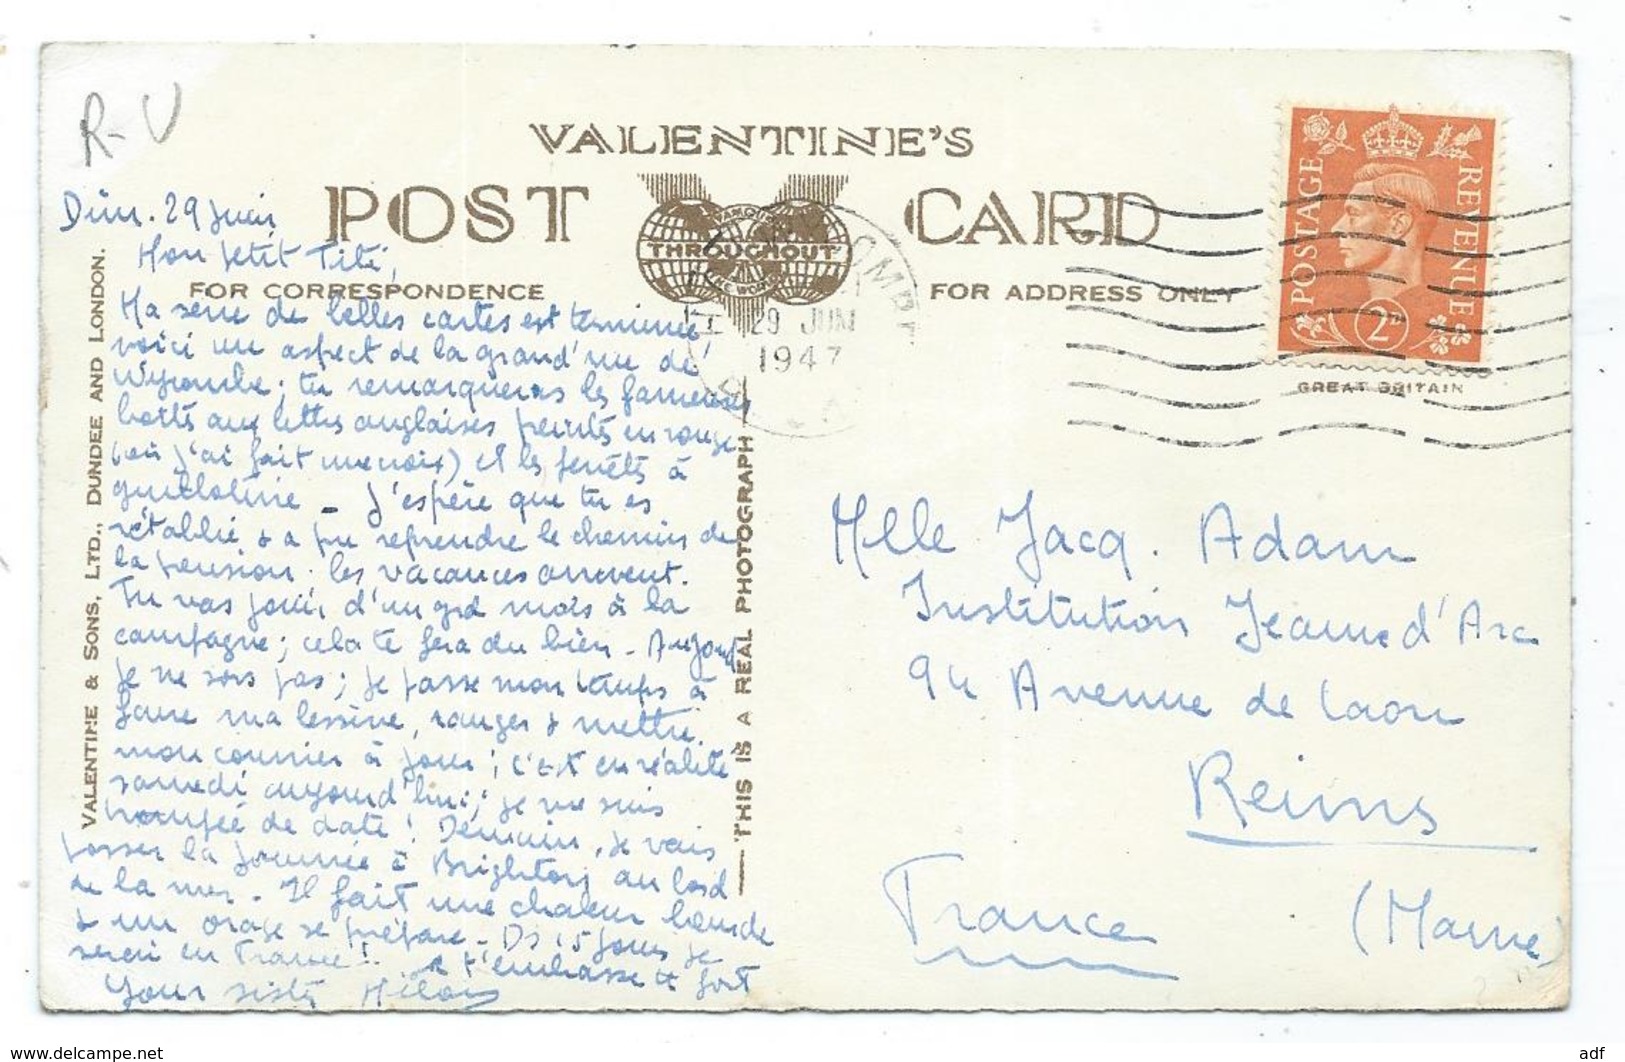 R-V
VALENTINE'S
POST CARD
FAMOUS
THROUGHOUT
THE WORLD
FOR CORRESPONDENCE
FOR ADDRESS ONLY
29 JUN
1947
POSTAGE REVENUE
2D
GREAT BRITAIN
VALENTINE & SONS, LTD., DUNDEE AND LONDON.
THIS IS A REAL PHOTOGRAPH
Dim. 29 Juin
Mon petit Titi,
Ma série de belles cartes est terminée
voici un aspect de la grand'rue de
Wycombe ; tu remarqueras les fameuses
boîtes aux lettres anglaises peintes en rouge
(où j'ai fait ) et les fenêtres à
guillotine _ J'espère que tu es
rétablie & a pu reprendre le chemin de
la pension. les vacances arrivent.
Tu vas jouir d'un grd mois à la
campagne ; cela te fera du bien _ Aujourd
je ne sors pas ; je passe mon temps à
faire ma lessive, ranger & mettre
mon courrier à jour ; c'est en réalité
samedi aujourd'hui ; je me suis
trompée de date ! Demain, je vais
passer la journée à Brighton, au bord
de la mer. Il fait une chaleur lourde
& un orage se prépare _ Ds 15 jours je
serai en France ! & t'embrasse fort
Your sister
Mlle Jacq. Adam
Institution Jeanne d'Arc
94 Avenue de Laon
Reims
(Marne)
France
www.delcampe.net
adf